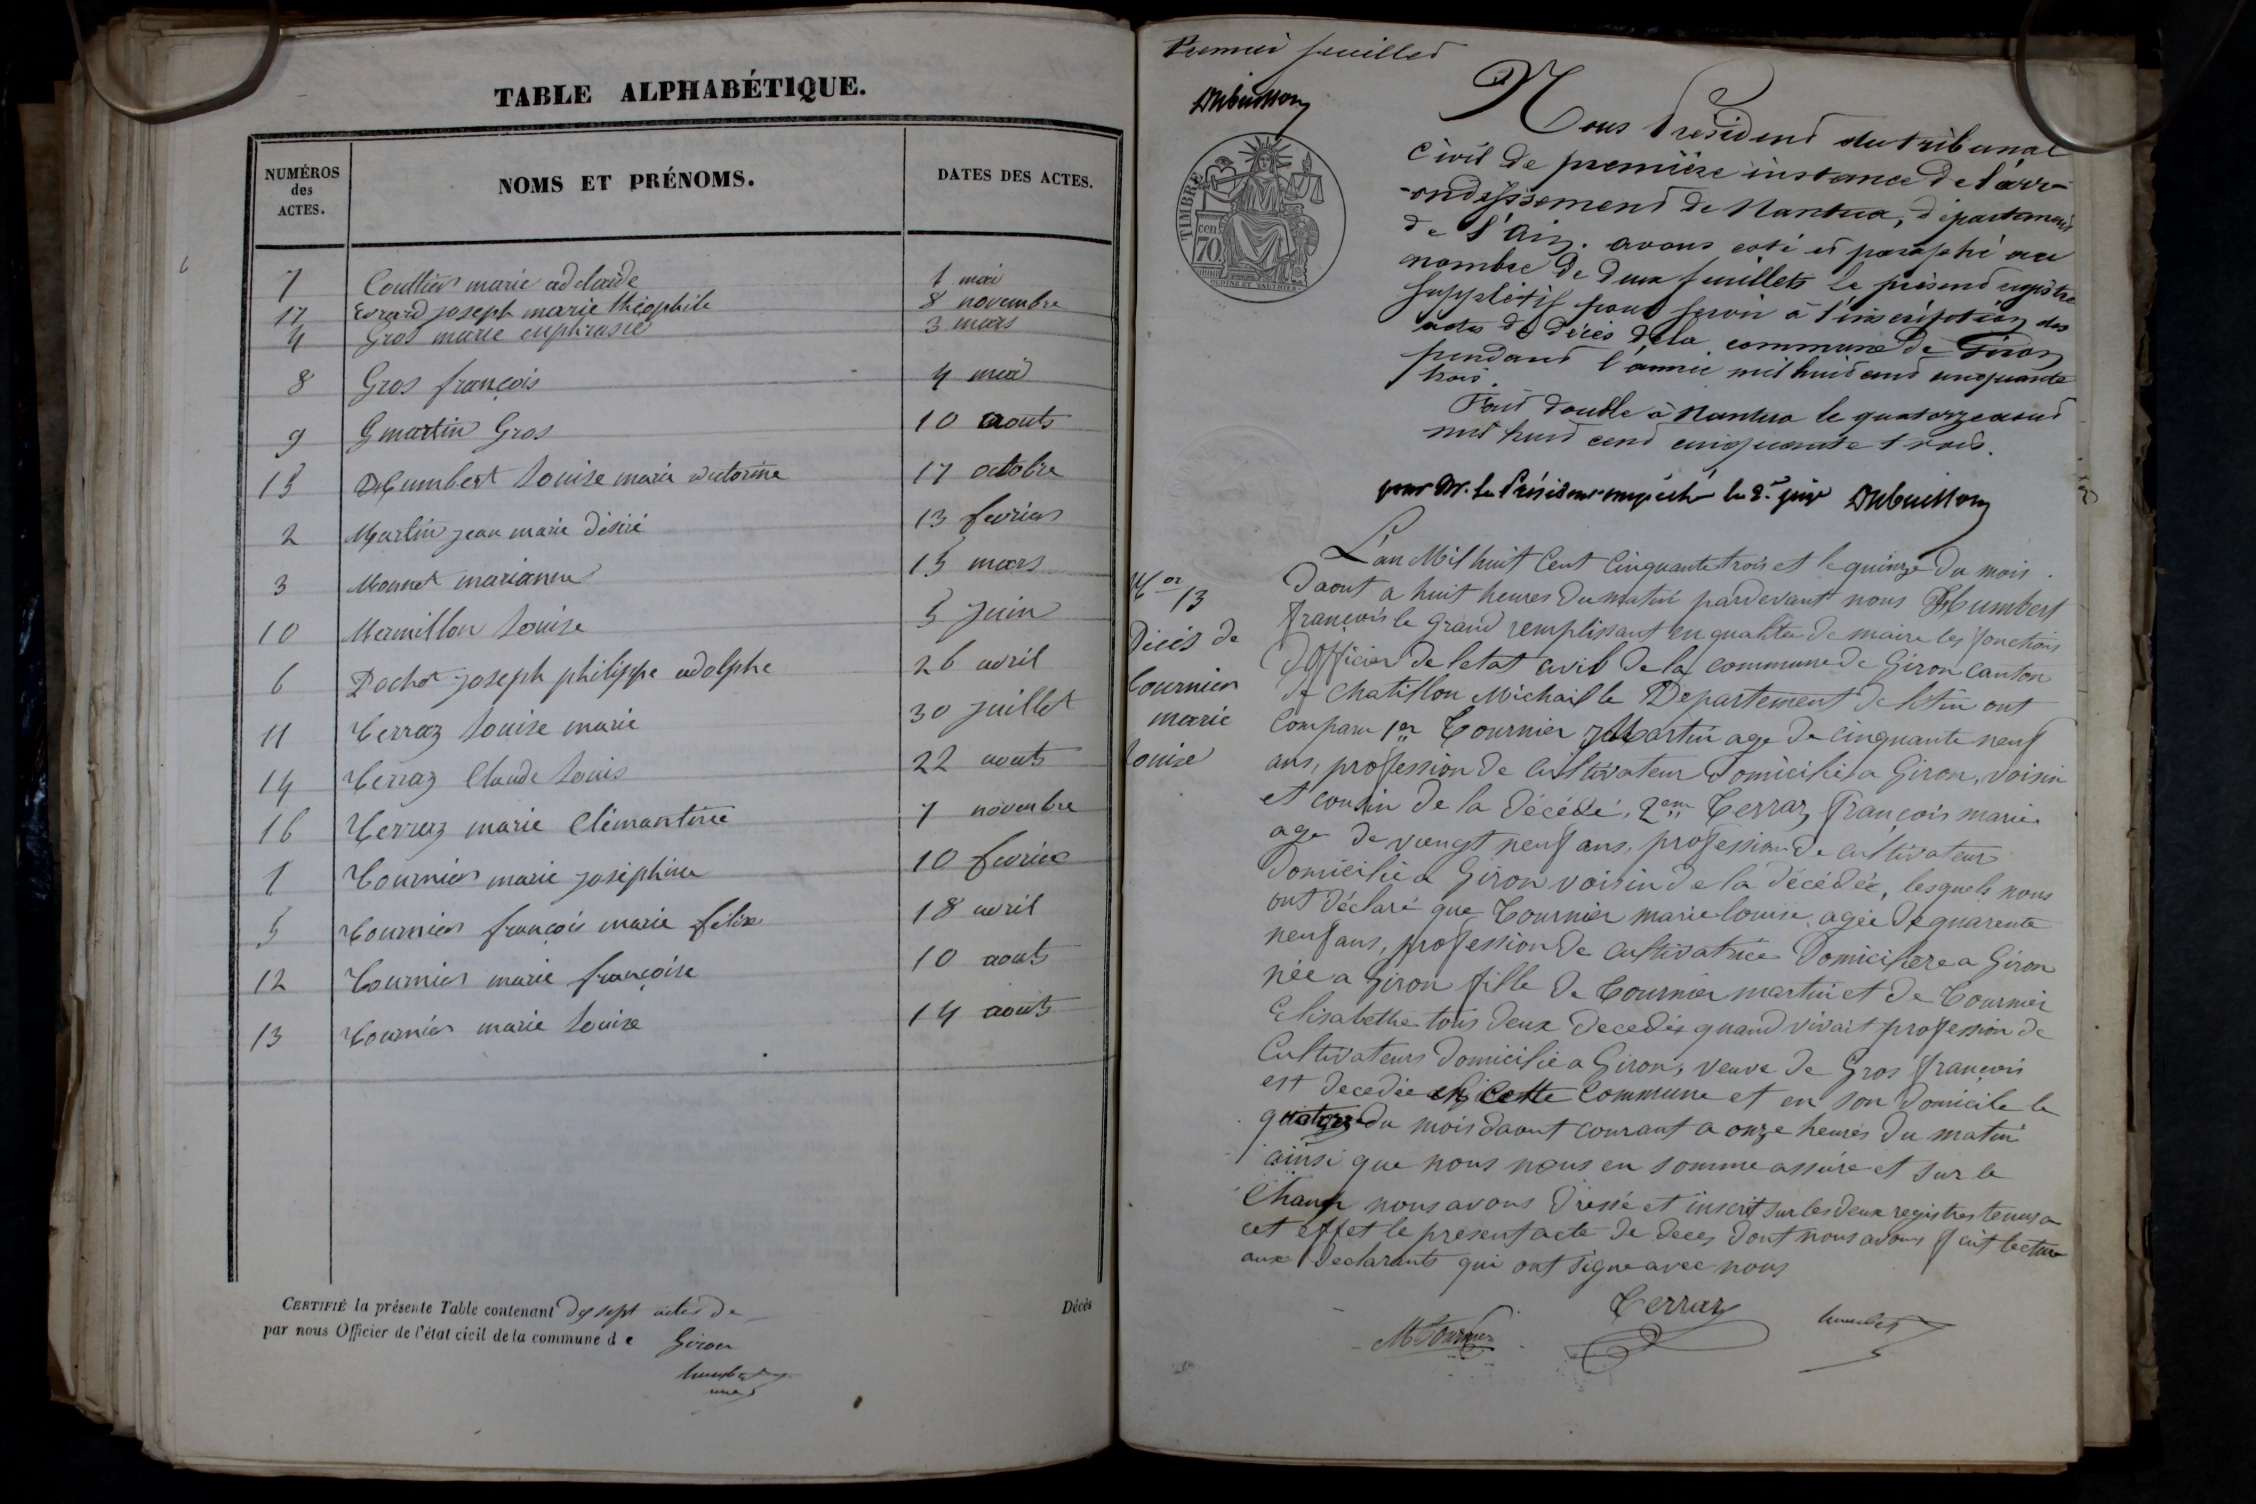 TABLE ALPHABÉTIQUE.
NUMÉROS des ACTES.
NOMS ET PRÉNOMS.
DATES DES ACTES.
7 Coutlier marie adelaide 1 mai
17 Evrard joseph marie théophile 8 novembre
4 Gros marie euphrasie 3 mars
8 Gros françois 4 mai
9 Gmartin Gros 10 aouts
15 Humbert Louise marie victorine 17 octobre
2 Martin jean marie désiré 13 fevrier
3 Monnet marianne 15 mars
10 Mermillon Louise 5 juin
6 Pochet joseph philippe adolphe 26 avril
11 Terraz Louise marie 30 juillet
14 Terraz Claude Louis 22 aouts
16 Terraz marie Clémantine 7 novembre
1 Tournier marie joséphine 10 fevrier
5 Tournier françois marie félix 18 avril
12 Tournier marie françoise 10 aouts
13 Tournier marie Louise 14 aouts
CERTIFIÉ la présente Table contenant dix sept actes de Décès
par nous Officier de l'état civil de la commune de Giron
Premier feuillet
Dubuisson
TIMBRE
70 cen
OUDINE ET GAUTHIER
Nous Président du tribunal
Civil de première instance de l'arr-
-ondissement de Nantua, département
de l'Ain. avons coté et paraphé au
nombre de deux feuillets le présent registre
supplétif pour servir à l'inscription des
actes de décès de la commune de Giron
pendant l'année mil huit cent cinquante
trois.
Fait double à Nantua le quatorze aout
mil huit cent cinquante trois.
pour Mr. le Président empêché le 2e juge Dubuisson
Nor 13
Décès de
Tournier
marie
Louise
L'an Mil huit Cent Cinquante trois et le quinze du mois
Daout a huit heures du matin pardevant nous Humbert
François le Grand remplissant en qualité de maire les fonctions
D'officier de letat civil de la commune de Giron canton
de Chatillon Michaille Departement de l'Ain ont
Comparu 1er Tournier Martin age de cinquante neuf
ans, profession de Cultivateur Domicilié a Giron, voisin
et cousin de la décédé, 2em Terraz François marie
age de vingt neuf ans, profession de Cultivateur
Domicilié a Giron voisin de la décédée, lesquels nous
ont déclaré que Tournier marie louise agée de quarente
neuf ans, profession de Cultivatrice Domiciliere a Giron
née a Giron fille de Tournier martin et de Tournier
Elisabethe tous deux decedés quand vivait profession de
Cultivateurs Domicilié a Giron, veuve de Gros françois
est decedée en cette Commune et en son Domicile le
quatorze du mois daout courant a onze heures du matin
ainsi que nous nous en somme assure et sur le
Champ nous avons Dressé et inscrit sur les deux registres tenus a
cet effet le present acte de deces dont nous avons fait lecture
aux Declarants qui ont signe avec nous
M Tournier
Terraz
humbert